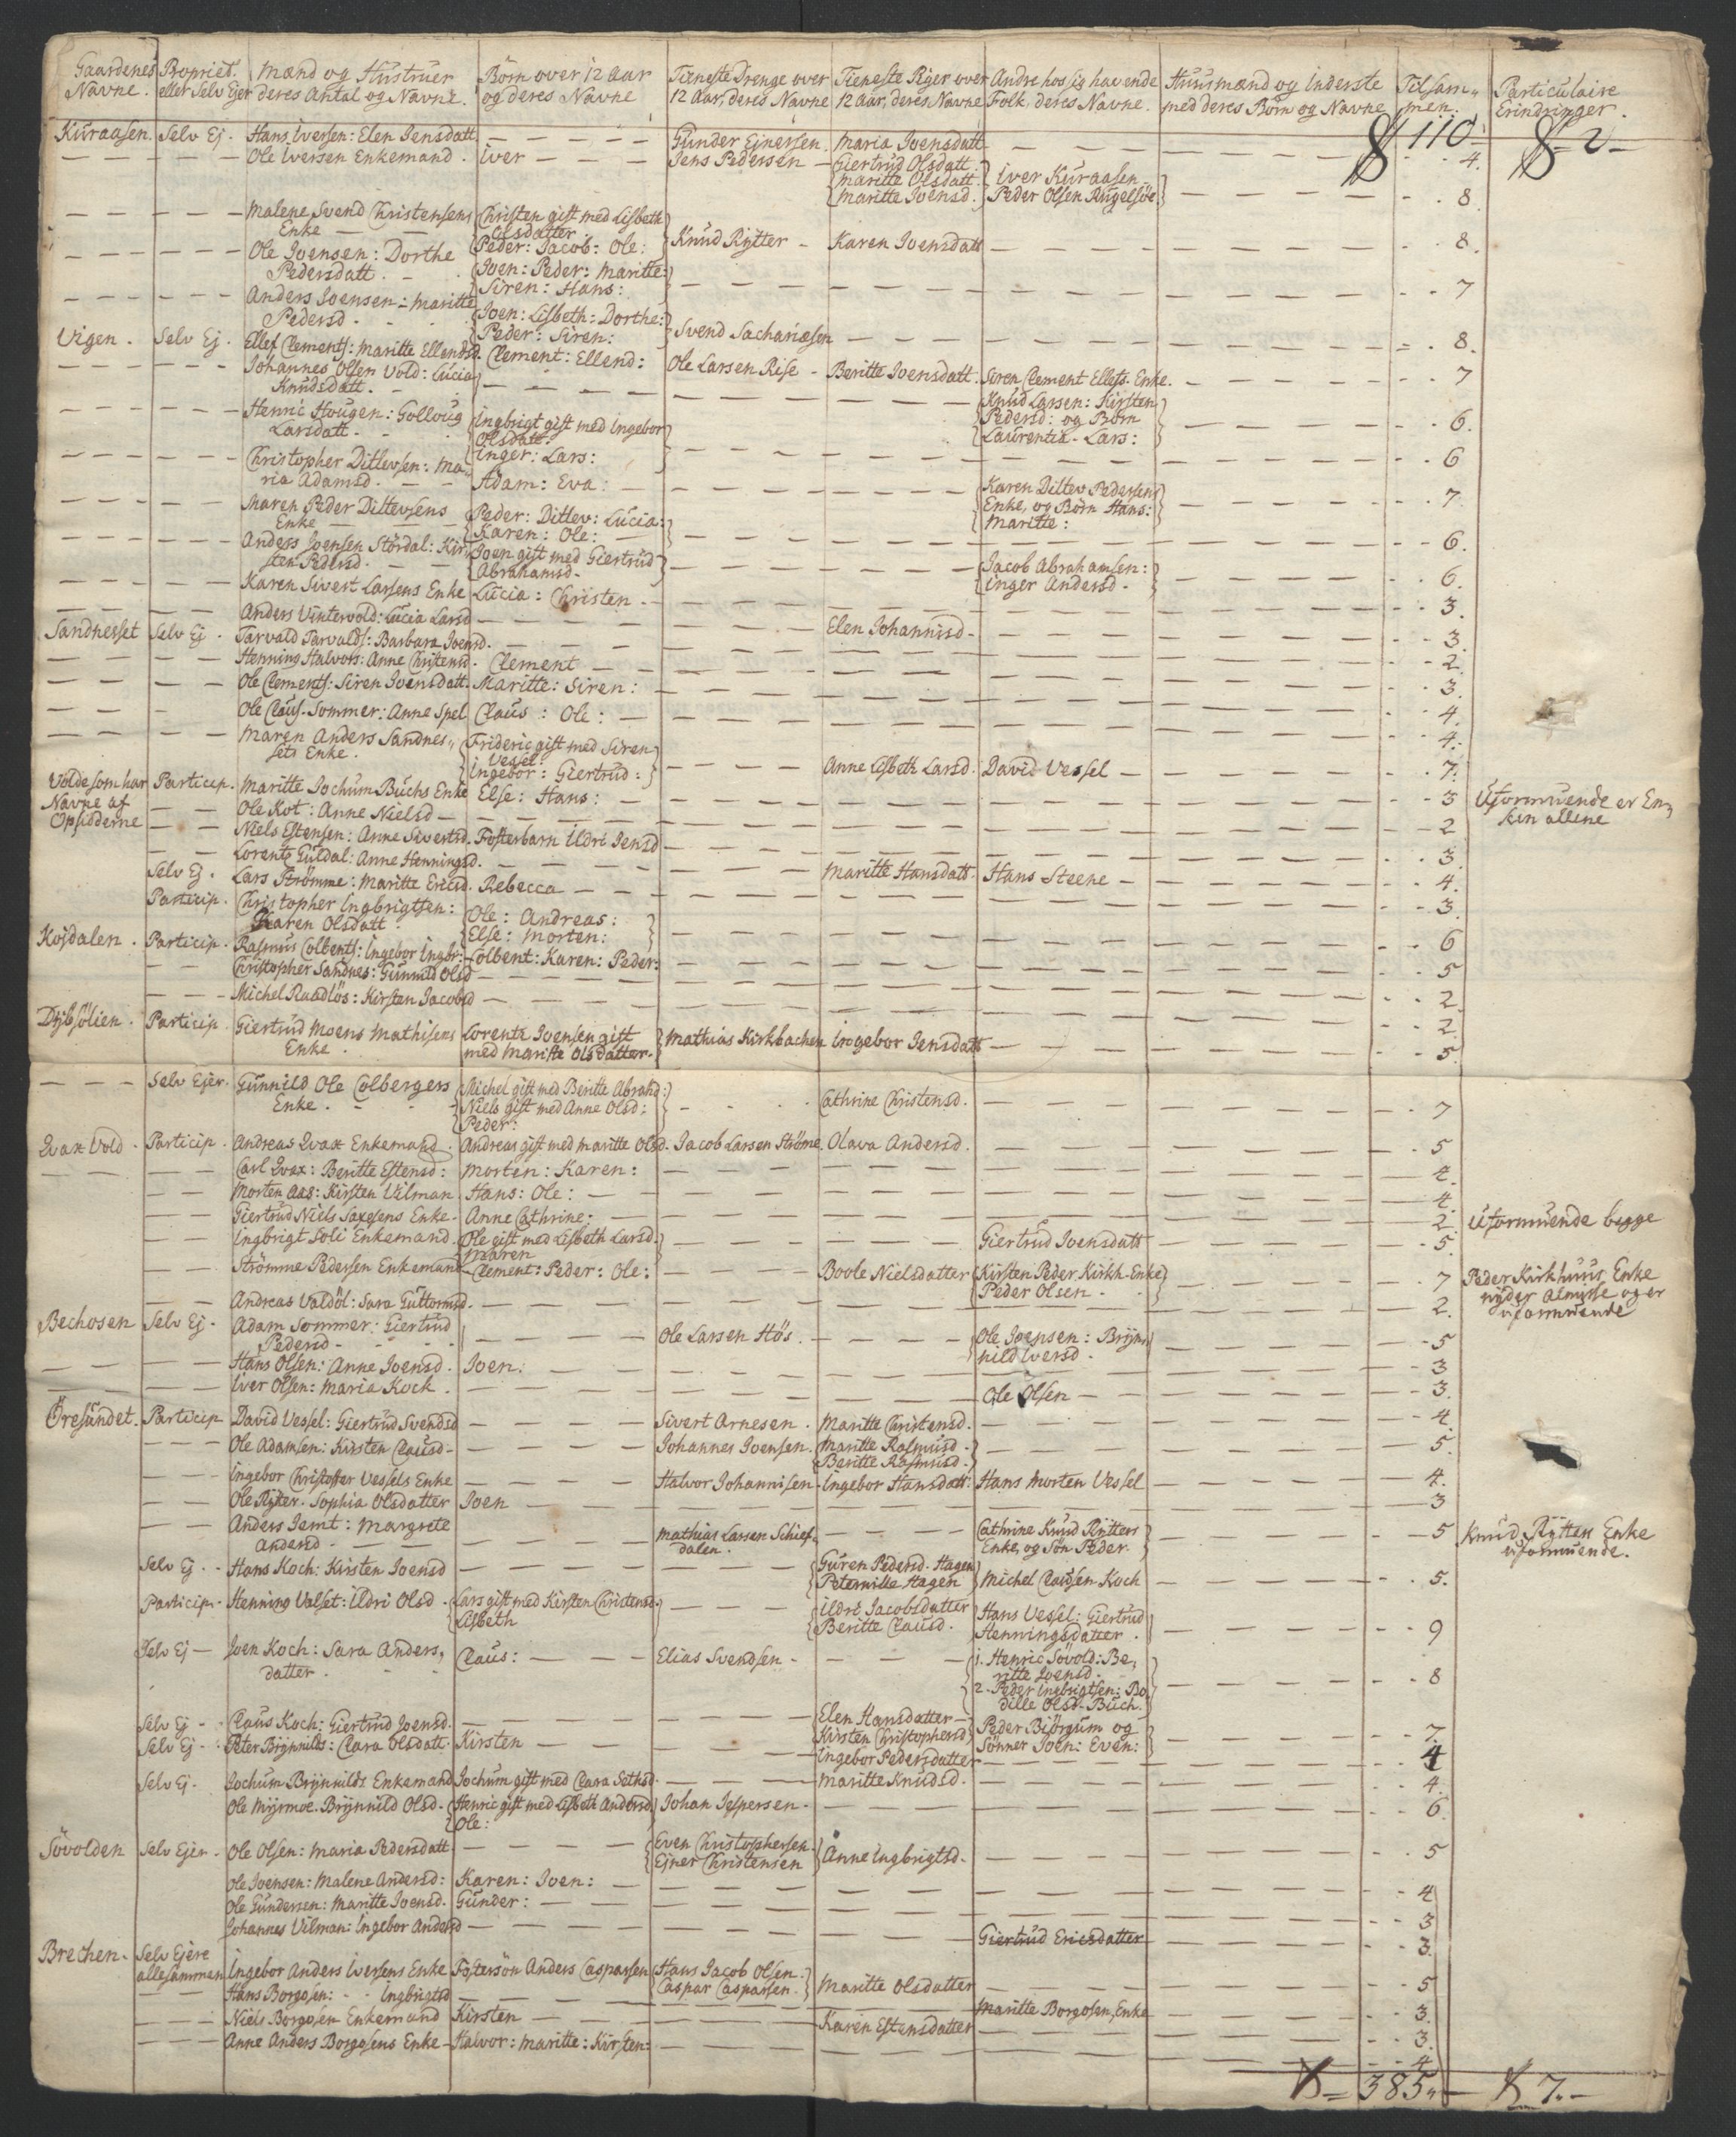 Gaardenes Navne. | Propriet. eller Selv Ejer | Mænd og Hustruer deres Antal og Navne. | Börn over 12 Aar og deres Navne | Tieneste Drenge over 12 Aar, deres Navne | Tieneste Piger over 12 Aar, deres Navne | Andre hos sig havende Folk, deres Navne. | Huusmænd og Inderste med deres Börn og Navne | Tilsam„men. | Particulaire Erindringer.
110 | 2
Kuraasen. | Selv Ej. | Hans Iversen: Elen Jensdatt | Gunder Ejnersen. | Maria Joensdatt | 4.
Ole Iversen Enkemand. | Iver | Jens Pedersen | Giertrud Olsdatt. Maritte Olsdatt. Maritte Joensd. | Iver Kuraasen Peder Olsen | 8.
Malene Svend Christensens Enke | Christen gift med Lisbeth Olsdatter. Peder: Jacob: Ole: | Knud Rytter | Karen Joensdatt | 8.
Ole Joensen: Dorthe Pedersdatt. | Joen: Peder: Maritte: Siren: Hans: | 7
Anders Joensen: Maritte Pedersd. | Joen: Lisbeth: Dorthe: Peder: Siren: | Svend Sachariæsen | 8.
Vigen. | Selv Ej. | Ellef Clements: Maritte Ellendsd. | Clement: Ellend: | Ole Larsen Rise | Beritte Joensdatt. | Siren Clement Ellefs. Enke. | 7
Johannes Olsen Vold: Lucia Knudsdatt. | Knud Larsen: Kirsten Pedersd: og Börn Laurentz. Lars: | 6.
Henric Hougen: Golloug Larsdatt. | Ingbrigt gift med Ingebor Olsdatt. Inger: Lars: | 6
Christopher Ditlevsen: Ma„ria Adamsd. | Adam: Eva: | Karen Ditlev Pedersens Enke, og Börn Hans: Maritte: | 7.
Maren Peder Ditlevsens Enke | Peder: Ditlev: Lucia: Karen: Ole: | 6.
Anders Joensen Stördal: Kir„sten Pedersd. | Joen gift med Giertrud Abrahamsd. | Jacob Abrahamsen: Inger Andersd. | 6.
Karen Sivert Larsens Enke | Lucia: Christen | 3.
Anders Vintervold: Lucia Larsd | Elen Johannisd | 3.
Sandnesset | Selv Ej. | Tarvald Tarvalds: Barbara Joensd. | 2.
Henning Halvors: Anne Christensd. | Clement | 3.
Ole Clements: Siren Joensdatt. | Maritte: Siren: | 4.
Ole Claus. Sommer: Anne Spel | Claus: Ole: | 4.
Maren Anders Sandnes„sets Enke. | Frideric gift med Siren Vessel. Ingebor: Giertrud: | Anne Lisbeth Larsd. | David Vessel | 7.
Volde som har Navne af Opsidderne | Particip. | Maritte Jochum Buchs Enke | Else: Hans: | 3 | Uformuende er En„ken allene
Ole Kot: Anne Nielsd | 2
Niels Estensen: Anne Sivertsd. | Fosterbarn Ildri Jensd | 3.
Lorentz Guldal: Anne Henningsd. | Maritte Hansdatt. | Hans Steene | 4.
Selv Ej. | Lars Strömme: Maritte Ericsd. | Rebecca | 3.
Particip. | Christopher Ingbrigtsen: Karen Olsdatt. | Ole: Andreas: Else: Morten: | 6
Kojdalen. | Particip. | Rasmus Colbents: Ingebor Ingbr: | Colbent: Karen: Peder: | 5
Christopher Sandnes: Gunnild Olsd | 2
Michel Raadlös: Kirsten Jacobsd | 2.
Dybsölien. | Particip. | Giertrud Moens Mathisens Enke. | Lorentz Joensen gift med Maritte Olsdatter. | Mathias Kirkbachen | Ingebor Jensdatt | 5.
Selv Ejer. | Gunnild Ole Colbergers Enke. | Michel gift med Beritte Abrahd: Niels gift med Anne Olsd: Peder: | Cathrine Christensd. | 7
Qvax Vold. | Particip. | Andreas Qvax Enkemand. | Andreas gift med Maritte Olsd. | Jacob Larsen Ströme. | Olava Andersd. | 5
Carl Qvax: Beritte Estensd: | Morten: Karen: | 4.
Morten Aas: Kirsten Vilman. | Hans: Ole: | 4.
Giertrud Niels Saxesens Enke. | Anne Cathrine: | 2. | Uformuende begge
Ingbrigt Soli Enkemand. | Ole gift med Lisbeth Larsd. Maren | Giertrud Joensdatt | 5.
Strömme Pedersen Enkemand | Clement: Peder: Ole: | Boole Nielsdatter | Kirsten Peder Kirkh. Enke Peder Olsen | 7 | Peder Kirkhuus Enke nyder Almisse og er uformuende
Andreas Valdöl: Sara Guttormsd. | 2.
Bechosen | Selv Ej. | Adam Sommer: Giertrud Pedersd. | Ole Larsen Hös. | Ole Joensen: Bryn„hild Iversd. | 5
Hans Olsen: Anne Joensd. | Joen: | 3
Iver Olsen: Maria Kock. | Ole Olsen | 3.
Öresundet. | Particip | David Vessel: Giertrud Svendsd | Sivert Arnesen. | Maritte Christensd. | 4.
Ole Adamsen: Kirsten Clausd. | Johannes Joensen. | Maritte Rasmusd. Beritte Rasmusd. | 5.
Ingebor Christoffer Vessels Enke | Halvor Johannisen | Ingebor Hansdatt: | Hans Morten Vessel | 4.
Ole Ryter. Sophia Olsdatter | Joen | 3
Anders Jemt: Margrete Andersd. | Mathias Larsen Schief„dalen. | Cathrine Knud Rytters Enke, og Sön Peder. | 5 | Knud Rytters Enke uformuende.
Selv Ej. | Hans Koch: Kirsten Joensd | Guren Pedersd. Hagen Peternille Hagen | Michel Clausen Koch | 5.
Particip. | Henning Valset: Ildri Olsd. | Lars gift med Kirsten Christensd. Lisbeth | Ildri Jacobsdatter Beritte Clausd. | Hans Vessel: Giertrud Henningsdatter. | 9
Selv Ej | Joen Koch: Sara Anders„datter. | Claus: | Elias Svendsen | 1. Henric Sövold: Be„ritte Joensd. 2. Peder Ingbrigtsen: Bo„dille Olsd. Buch. | 8
Selv Ej | Claus Koch: Giertrud Joensd. | Elen Hansdatter Kirsten Christophersd | Peder Biörgum og Sönner Joen: Even: | 7.
Selv Ej | Peter Brynnilds: Clara Olsdatt. | Kirsten | Ingebor Pedersdatter | 4
Selv Ej. | Jochum Brynnilds Enkemand | Jochum gift med Clara Sethsd. | Maritte Knudsd. | 4.
Ole Myrmoe. Brynnild Olsd. | Henric gift med Lisbeth Andersd. Ole: | Johan Jespersen | 6.
Sövolden | Selv Ejer. | Ole Olsen: Maria Pedersdatt | Even Christophersen. Ejner Christensen | Anne Ingbrigtsd. | 5
Ole Joensen: Malene Andersd: | Karen: Joen: | 4
Ole Gundersen: Maritte Joensd. | Gunder: | 3
Johannes Vilman: Ingebor Andersd | Giertrud Ericsdatter | 3.
Brechen. | Selv Ejere allesammen | Ingebor Anders Iversens Enke | Fostersön Anders Casparsen | Hans Jacob Olsen. Caspar Casparsen. | Maritte Olsdatter | 5
Hans Borgosen: Ingbrigtsd | Maritte Borgosen, Enke | 3.
Niels Borgosen Enkemand | Kirsten | Karen Estensdatter | 3.
Anne Anders Borgosens Enke | Halvor: Maritte: Kirsten: | 4
385 | 7.